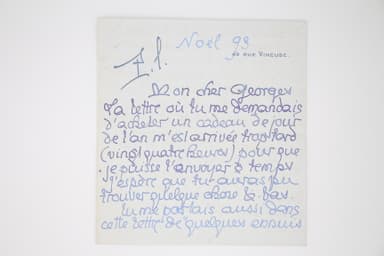 Noël 93
RUE VINEUSE.
Mon cher Georges
Ta lettre où tu me demandais
d'acheter un cadeau de jour
de l'an m'est arrivée trop tard
(vingt quatre heures) pour que
je puisse l'envoyer à temps
j'espère que tu auras pu
trouver quelque chose là bas.
Tu me parlais aussi dans
cette lettre de quelques ennuis